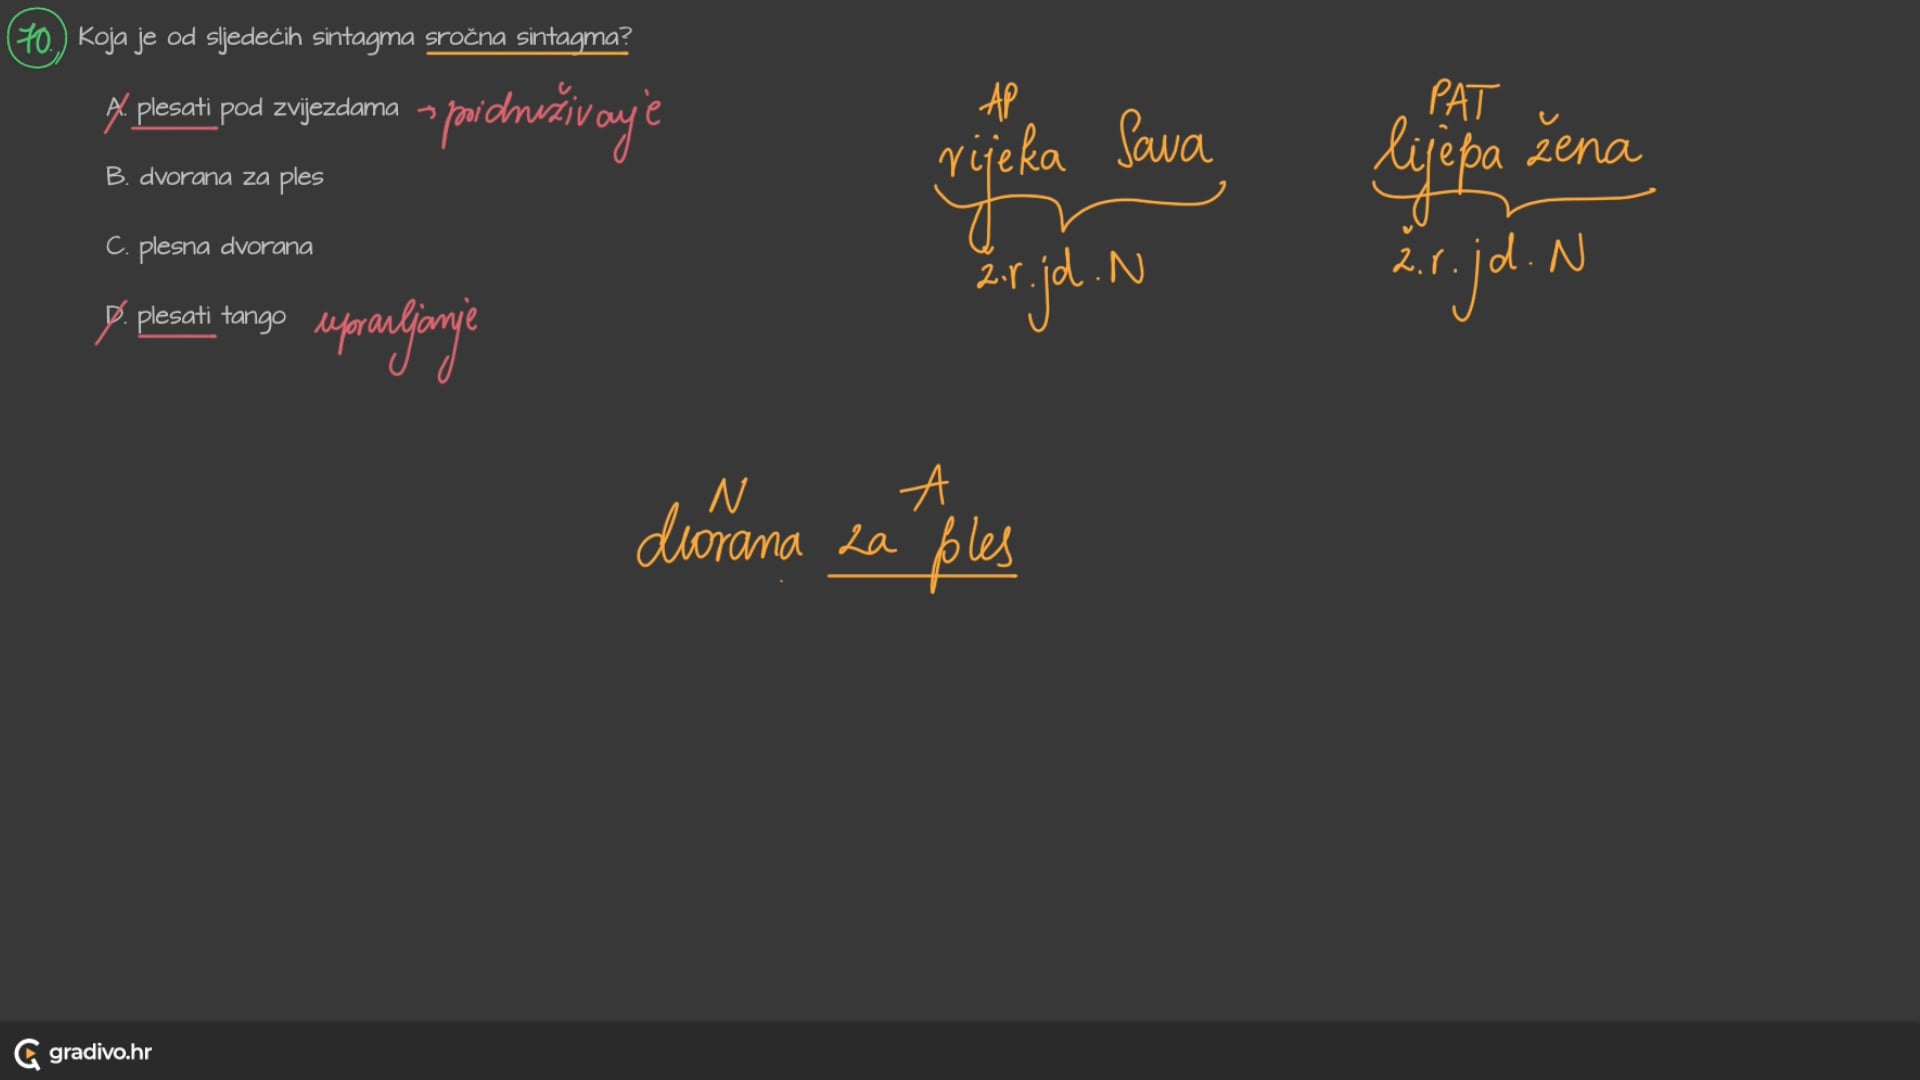 70. Koja je od sljedećih sintagma sročna sintagma?
A. plesati pod zvijezdama → pridruživanje
B. dvorana za ples
C. plesna dvorana
D. plesati tango upravljanje
AP
rijeka Sava
ž.r. jd. N
PAT
lijepa žena
ž.r. jd. N
N A
dvorana za ples
gradivo.hr